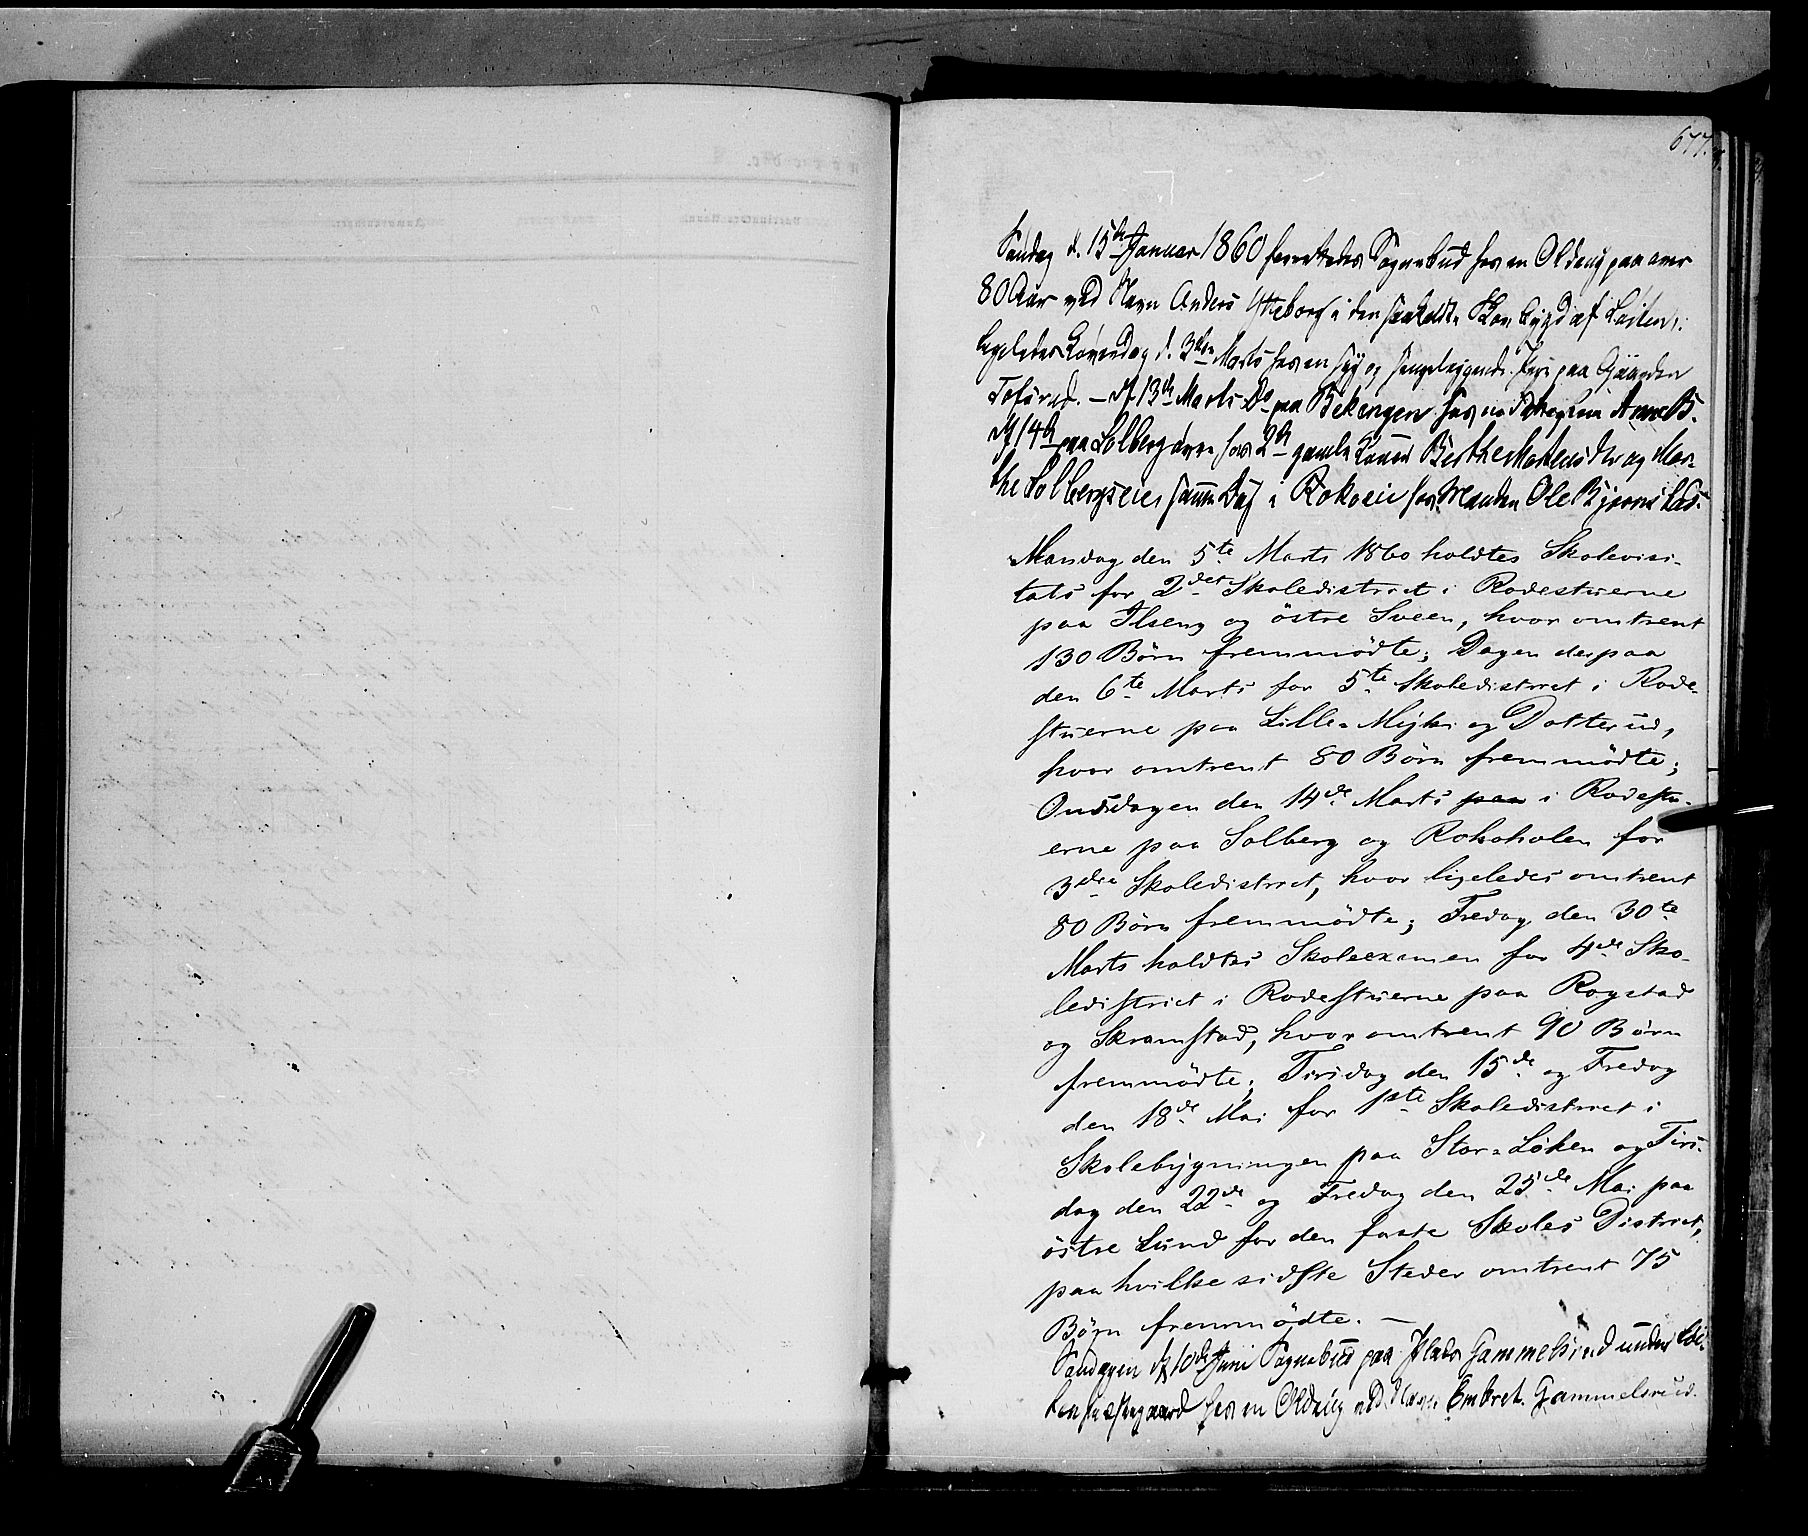 677.
Søndag d. 15de Januar 1860 forrettedes Sognebud hos en Olding paa over
80 Aar ved Navn Anders Ytteborg i den saakaldte Bygd af Løiten;
ligeledes Løverdag d. 3die Marts hos en syg og sengeliggende Pige paa Gaarden
Tofsrud. – d 13de Marts Do paa Bekengen hos Anne B.
d 14de paa Solberg hos 2de gamle Koner Berthe Mortensdtr og Mar-
the Solbergseie samme Dag i Rokoeie hos Manden Ole Bjørnstad.
Mandag den 5te Marts 1860 holdtes Skolevisi-
tats for 2det Skoledistrict i Rodestuerne
paa Ilseng og östre Sveen, hvor omtrent
130 Børn fremmödte; Dagen derpaa
den 6te Marts for 5te Skoledistrict i Rode-
stuerne paa Lille-Mÿhr og Dotterud,
hvor omtrent 80 Børn fremmödte;
Onsdagen den 14de Marts paa i Rodestu-
erne paa Solberg og Rokoholen for
3die Skoledistrict, hvor ligeledes omtrent
80 Børn fremmödte; Fredag den 30te
Marts holdtes Skoleexamen for 4de Sko-
ledistrict i Rodestuerne paa Rogstad
og Skramstad, hvor omtrent 90 Børn
fremmödte; Tirsdag den 15de og Fredag
den 18de Mai for 1ste Skoledistrict i
Skolebygningen paa Stor-Løken og Tirs-
dag den 22de og Fredag den 25de Mai paa
östre Lund for den faste Skoles District,
paa hvilke sidste Steder omtrent 75
Børn fremmödte. –
Søndagen d 10de Juni Sognebud paa Pladsen Gammelsrud under Løi-
ten Præstegaard hos en Olding ved Navn Embret Gammelsrud.